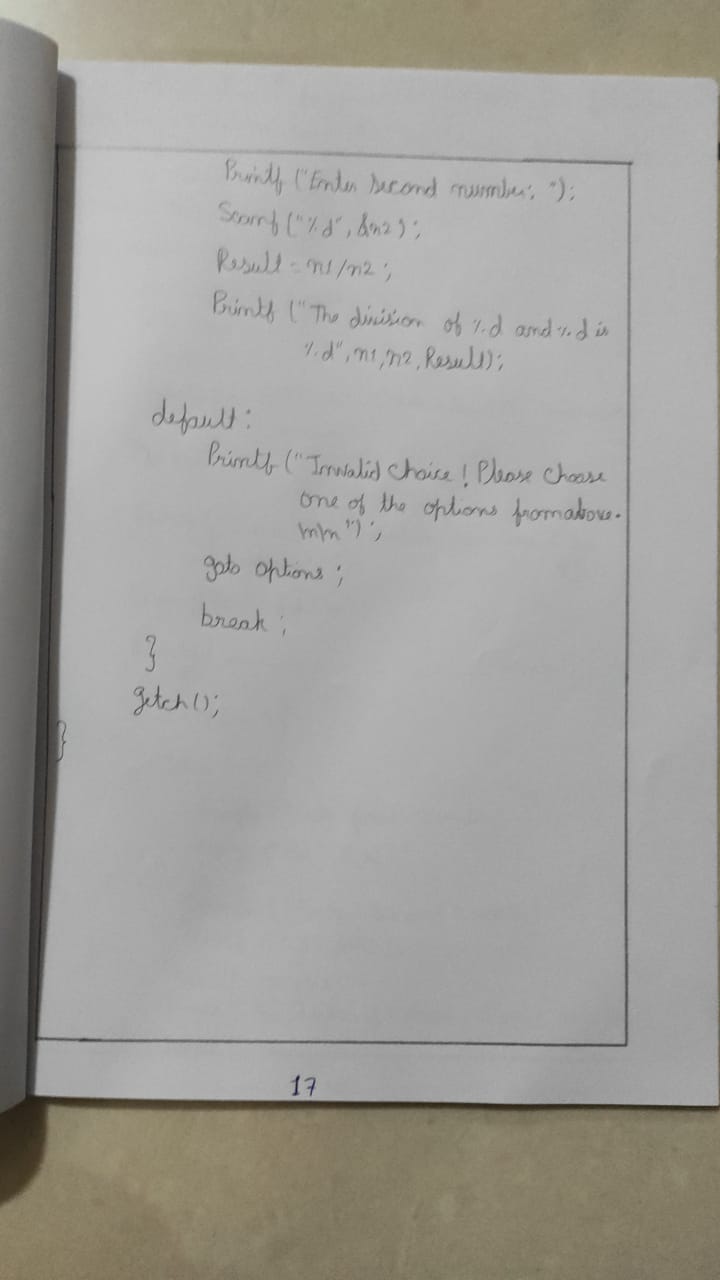 Printf ("Enter Second number: ");
Scanf ("%d", &n2);
Result = n1/n2;
Printf ("The division of %d and %d is
%d", n1, n2, Result);
default:
Printf ("Invalid Choice! Please Choose
one of the options fromabove.
\n\n");
goto options;
break;
}
getch();
}
17